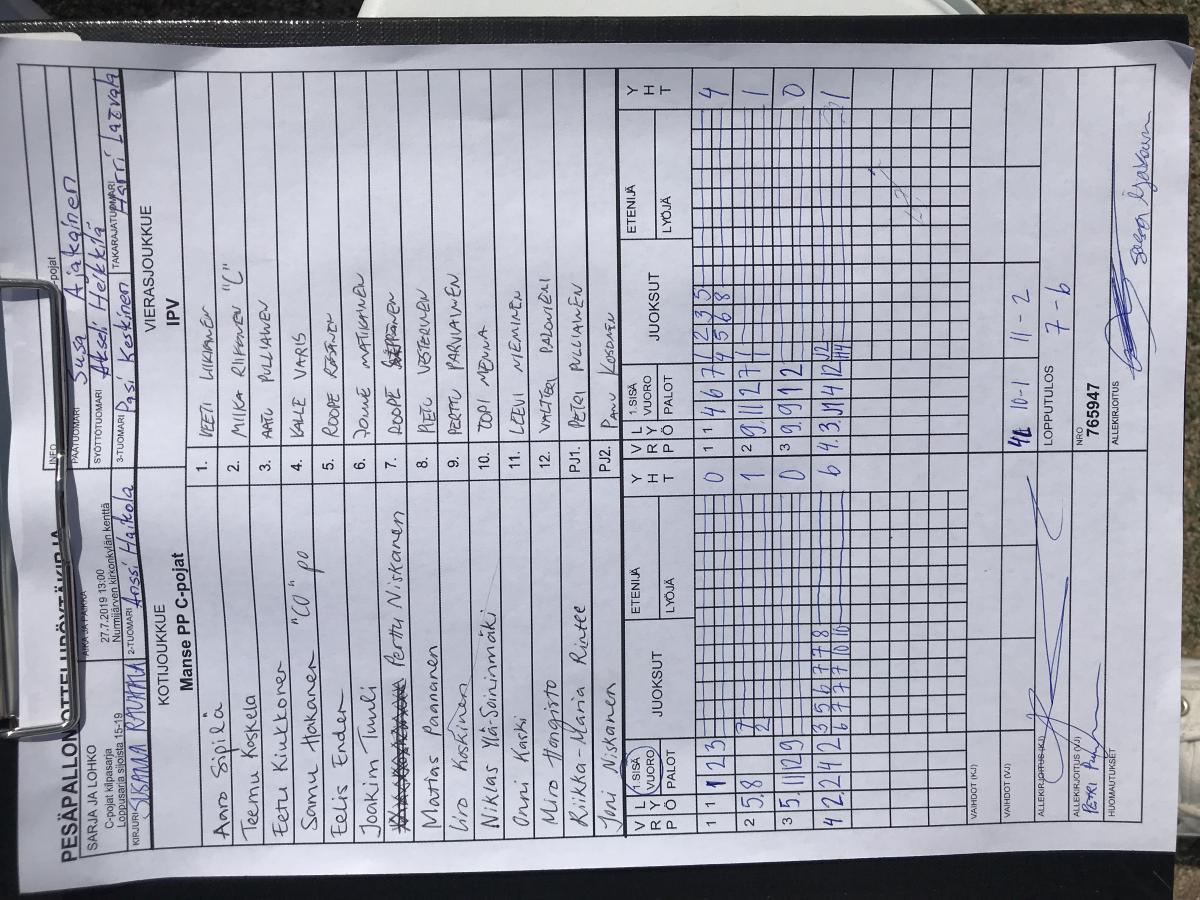 PESÄPALLON OTTELUPÖYTÄKIRJA
INFO
C-pojat
SARJA JA LOHKO
C-pojat kilpasarja
Loppusarja sijoista 15-19
AIKA JA PAIKKA
27.7.2019 13:00
Nurmijärven kirkonkylän kenttä
PÄÄTUOMARI Susa Ajakainen
SYÖTTÖTUOMARI Akseli Heikkilä
KIRJURI
2-TUOMARI Anssi Haikola
3-TUOMARI Pasi Keskinen
TAKARAJATUOMARI Harri Laavala
KOTIJOUKKUE
Manse PP C-pojat
VIERASJOUKKUE
IPV
Aaro Sipilä 1. VEETI LIIKANEN
Teemu Koskela 2. MIIKA RIIKONEN "C"
Eetu Kiukkonen 3. AATU PULLIAINEN
Samu Hakanen "CO" po 4. KALLE VARIS
Eelis Ender 5. ROOPE RÄSÄNEN
Joakim Tuuli 6. JOUNE MATIKAINEN
Perttu Niskanen 7. ROOPE
Matias Paananen 8. PIETU VESTERINEN
Iiro Koskinen 9. PERTTU PARVIAINEN
Niklas Ylä-Soininmäki 10. TOPI MENNA
Onni Kaski 11. LEEVI NIEMINEN
Miro Hongisto 12. VALTTERI PAJUNIEMI
Riikka-Maria Rintee PJ1. PETRI PULLIAINEN
Juni Niskanen PJ2. PANU KOSONEN
V R P L Y Ö 1.SISÄ VUORO PALOT JUOKSUT ETENIJÄ LYÖJÄ Y H T V R P L Y Ö 1.SISÄ VUORO PALOT JUOKSUT ETENIJÄ LYÖJÄ Y H T
1 1 1 2 3 0 1 1 4 6 7 1 2 3 5 4
4 5 6 8
2 5. 8 7 1 2 9. 11 12 7 1
2 1
3 5. 11 12 9 0 3 9. 9 12 0
4 2. 2 4 12 3 5 6 7 7 8 6 4. 3. 3 14 12 12 1
6 7 7 7 10 10
VAIHDOT (KJ)
VAIHDOT (VJ)
10-1 11-2
ALLEKIRJOITUS (KJ)
LOPPUTULOS
7 - 6
ALLEKIRJOITUS (VJ)
NRO
765947
HUOMAUTUKSET
ALLEKIRJOITUS